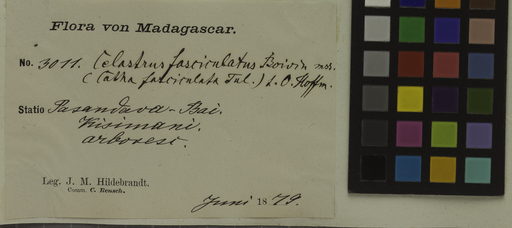 Flora von Madagascar.
No. 3011. Celastrus fasciculatus Boivin mss.
(Catha fasciculata Tul.) t. O. Hoffm.
Statio Pasandava-Bai.
Kisimani.
arboresc.
Leg. J. M. Hildebrandt.
Comm. C. Rensch.
Juni 1879.